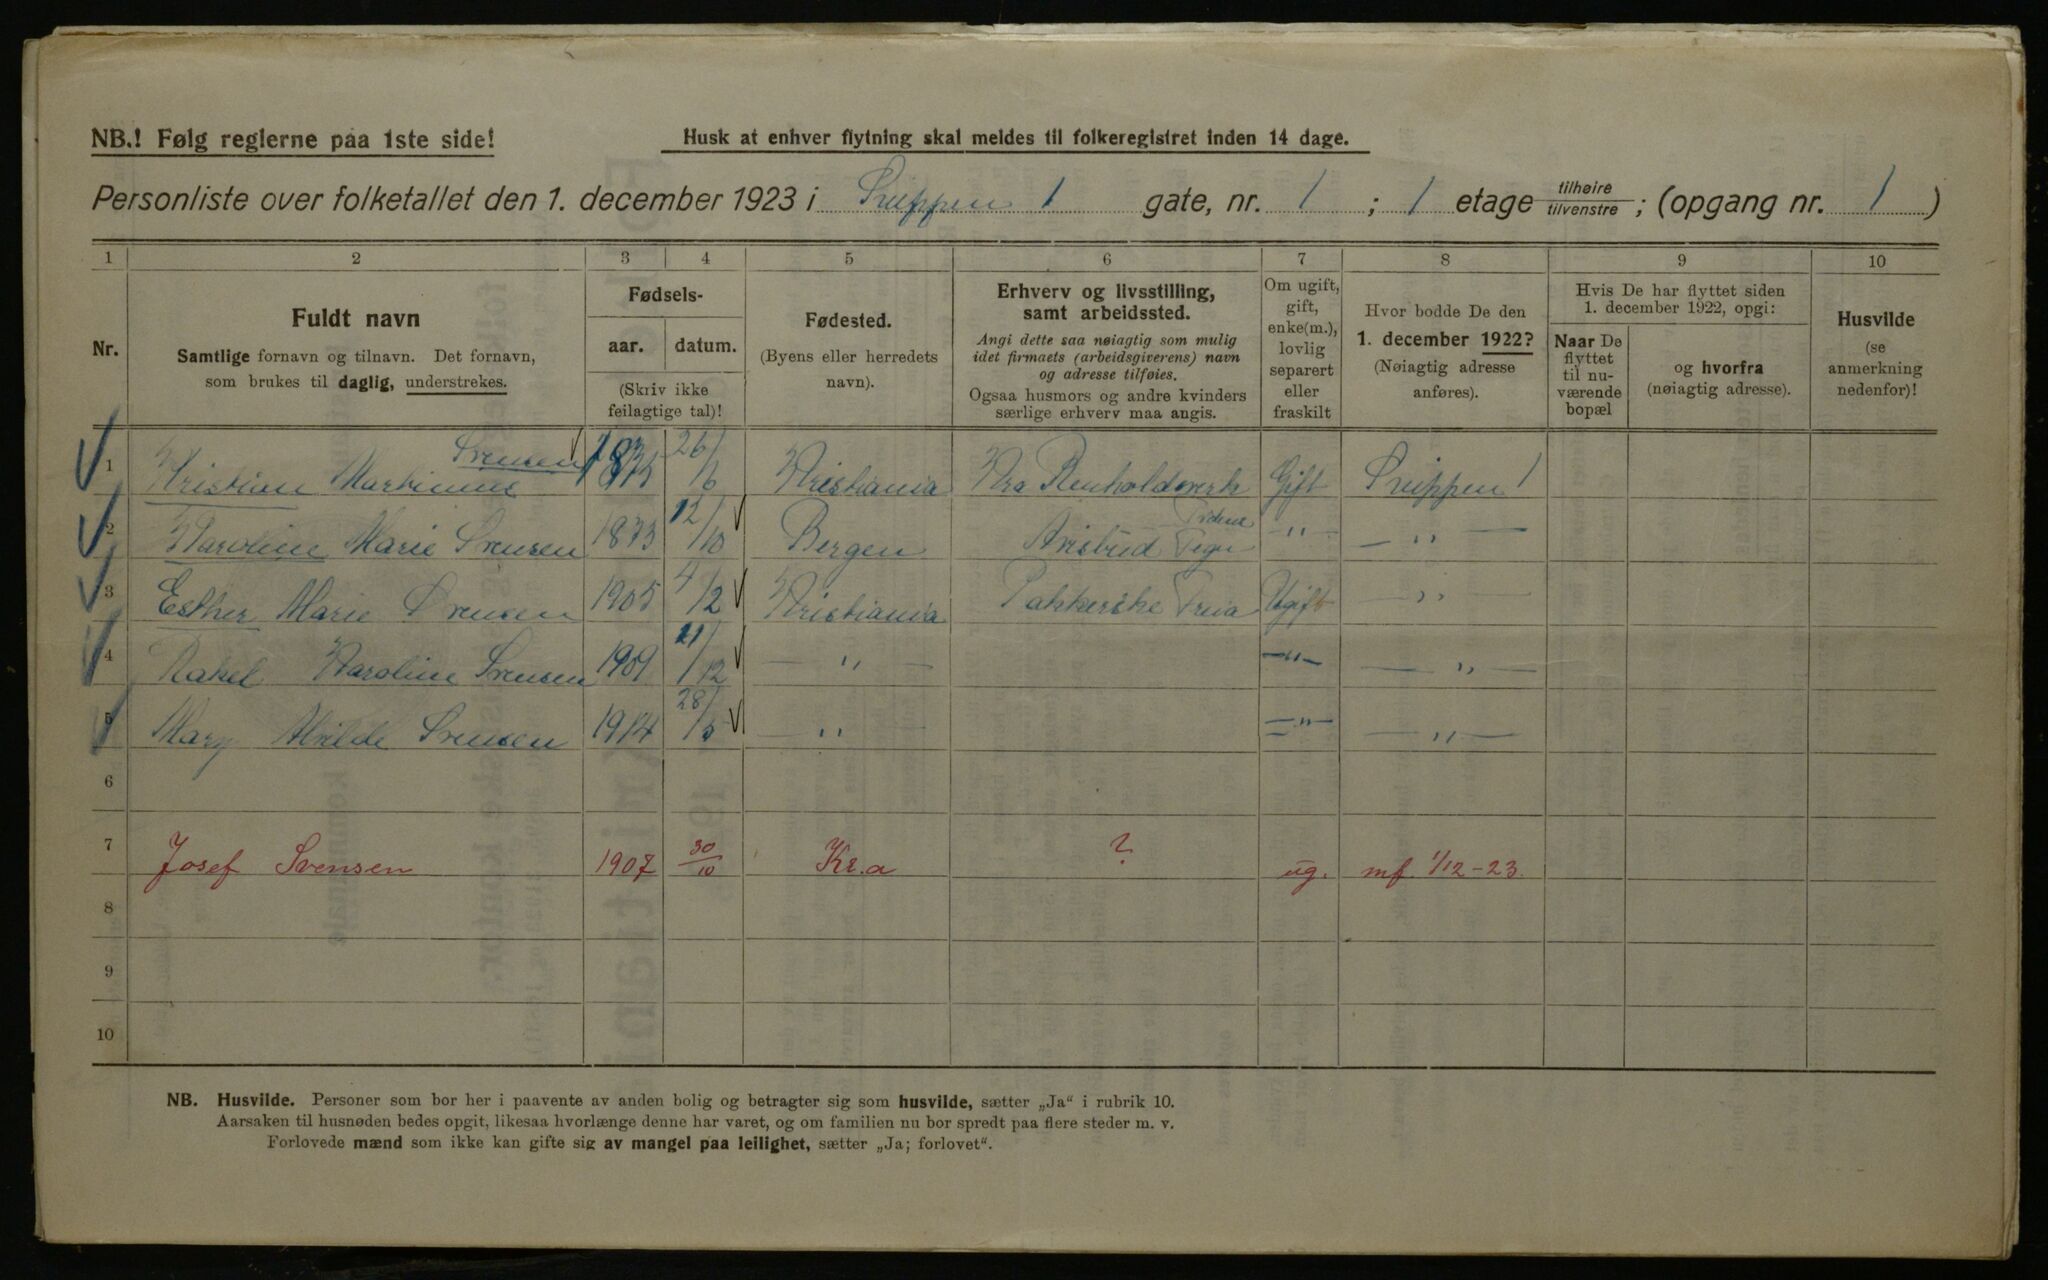 NB.! Følg reglerne paa 1ste side!
Husk at enhver flytning skal meldes til folkeregistret inden 14 dage.
Personliste over folketallet den 1. december 1923 i Snippen 1 gate, nr. 1 ; 1 etage tilhøire tilvenstre ; (opgang nr. 1 )
1 2 3 4 5 6 7 8 9 10
Nr.
Fuldt navn
Samtlige fornavn og tilnavn. Det fornavn,
som brukes til daglig, understrekes.
Fødsels-
aar. datum.
(Skriv ikke
feilagtige tal)!
Fødested.
(Byens eller herredets
navn).
Erhverv og livsstilling,
samt arbeidssted.
Angi dette saa nøiagtig som mulig
idet firmaets (arbeidsgiverens) navn
og adresse tilføies.
Ogsaa husmors og andre kvinders
særlige erhverv maa angis.
Om ugift,
gift,
enke(m.),
lovlig
separert
eller
fraskilt
Hvor bodde De den
1. december 1922?
(Nøiagtig adresse
anføres).
Hvis De har flyttet siden
1. december 1922, opgi:
Naar De
flyttet
til nu-
værende
bopæl
og hvorfra
(nøiagtig adresse).
Husvilde
(se
anmerkning
nedenfor)!
1 Kristian Martinius Svensen 1875 26/6 Kristiania Kra Renholdsverk Gift Snippen 1
2 Karoline Marie Svensen 1873 12/10 Bergen Avisbud Tidens Tegn —"— —"—
3 Esther Marie Svensen 1905 4/2 Kristiania Pakkerske Freia Ugift —"—
4 Rakel Karoline Svensen 1909 21/12 —"— —"— —"—
5 Mary Alvilde Svensen 1914 28/5 —"— —"— —"—
6
7 Josef Svensen 1907 30/10 Kr.a ? ug. mf. 1/12-23.
8
9
10
NB. Husvilde. Personer som bor her i paavente av anden bolig og betragter sig som husvilde, sætter „Ja“ i rubrik 10.
Aarsaken til husnøden bedes opgit, likesaa hvorlænge denne har varet, og om familien nu bor spredt paa flere steder m. v.
Forlovede mænd som ikke kan gifte sig av mangel paa leilighet, sætter „Ja; forlovet“.